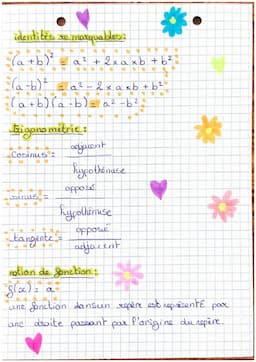 identités remarquables:
(a+b)² = a² + 2 x a x b + b²
(a-b)² = a² - 2 x a x b + b²
(a+b)(a-b) = a² - b²
trigonométrie:
Cosinus = adjacent
hypothénuse
sinus = opposé
hypothénuse
tangente = opposé
adjacent
notion de fonction:
f(x) = a
une fonction dans un repère est représenté par
une droite passant par l'origine du repère.